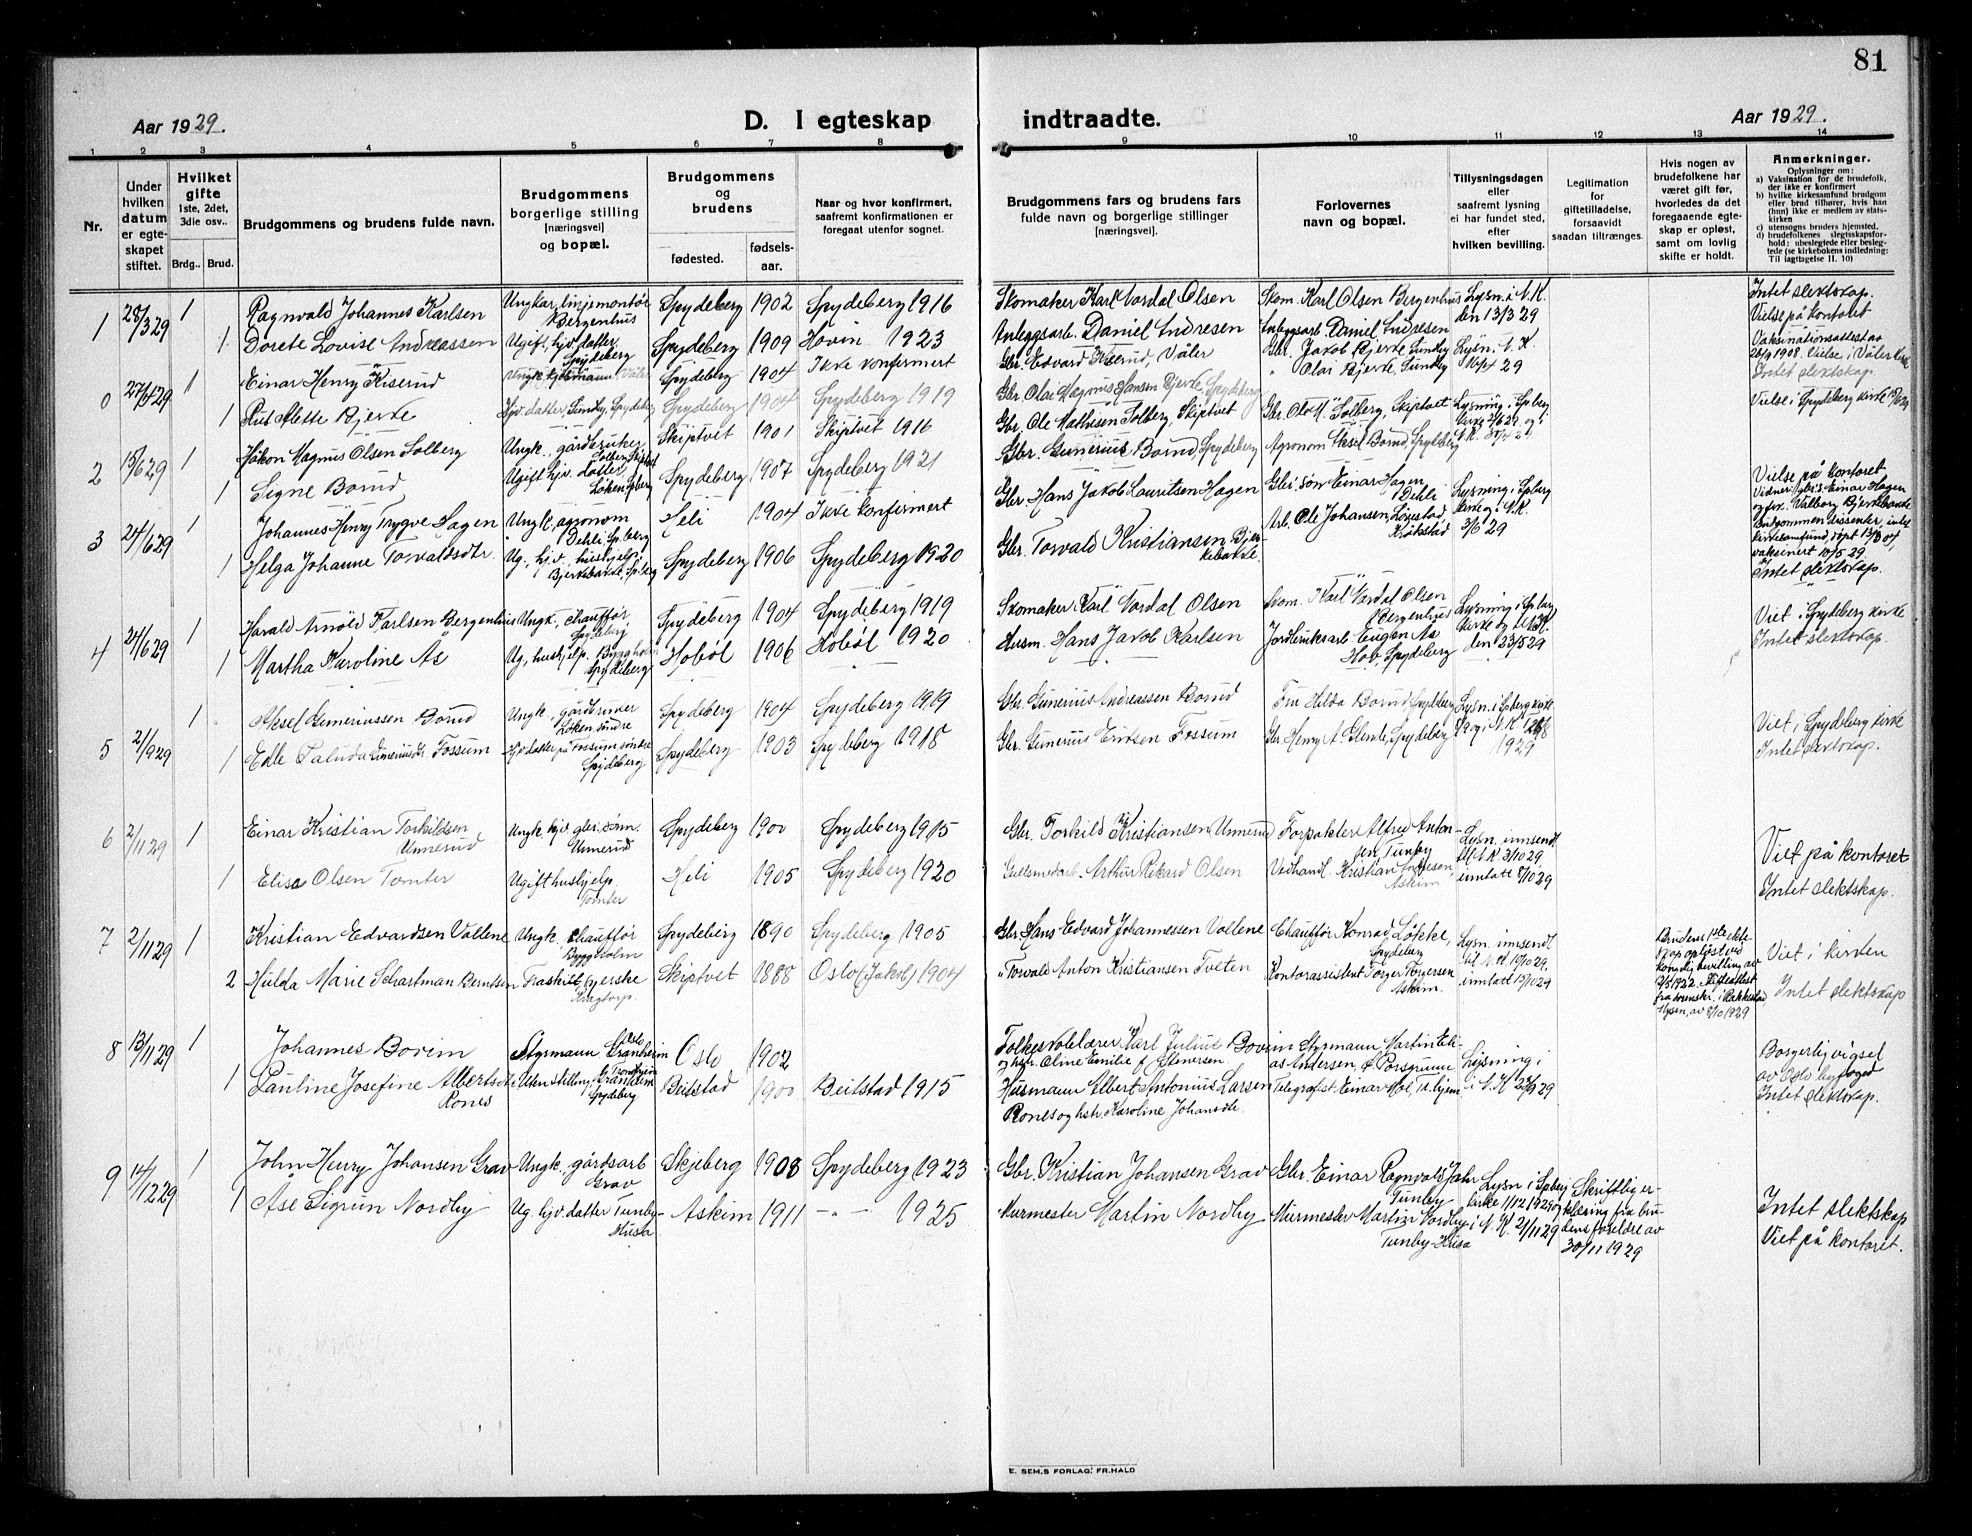 81
Aar 1929.
D. I egteskap
indtraadte.
Aar 1929.
1 2 3 4 5 6 7 8 9 10 11 12 13 14
Nr.
Under hvilken datum er egteskapet stiftet.
Hvilket gifte 1ste, 2det, 3die osv..
Brdg.. Brud.
Brudgommens og brudens fulde navn.
Brudgommens borgerlige stilling [næringsvei] og bopæl.
Brudgommens og brudens
fødested.
fødsels-aar.
Naar og hvor konfirmert, saafremt konfirmationen er foregaat utenfor sognet.
Brudgommens fars og brudens fars fulde navn og borgerlige stillinger [næringsvei]
Forlovernes navn og bopæl.
Tillysningsdagen eller saafremt lysning ei har fundet sted, efter hvilken bevilling.
Legitimation for giftetilladelse, forsaavidt saadan tiltrænges.
Hvis nogen av brudefolkene har været gift før, hvorledes da det foregaaende egteskap er opløst, samt om lovlig skifte er holdt.
Anmerkninger.
Oplysninger om:
a) Vaksination for de brudefolk, der ikke er konfirmert
b) hvilke kirkesamfund brudgom eller brud tilhører, hvis han (hun) ikke er medlem av statskirken
c) utensogns bruders hjemsted.
d) brudefolkenes slegtsskapsforhold: ubeslegtede eller beslegtede (se kirkebokens indledning: Til iagttagelse II. 10)
1 28/3 29 1 Ragnvald Johannes Karlsen Ungkar, linjemontør Bergenhus Spydeberg 1902 Spydeberg 1916 Skomaker Karl Vardal Olsen Skom. Karl Olsen Bergenhus Lysn. i N.K. den 13/3 29 Intet slektskap. Vielse på kontoret
1 Dorete Lovise Andreassen Ugift, hjv. datter, Spydeberg Spydeberg 1909 Hovin 1923 Anleggsarb. Daniel Andresen Anleggsarb. Daniel Andresen
0 27/4 29 1 Einar Henry Kiserud Ungk. Spydeberg 1904 Ikke konfirmert Gbr. Edvard Kiserud, Våler Gbr. Jakob Bjerke, Sundby Lysn. N.K. 16/4 29 Vaksinationsattest av 28/9 1908. Vielse i Våler kirke Intet slektskap.
1 Rut Alette Bjerke Hjv. datter Sundby, Spydeberg Spydeberg 1904 Spydeberg 1919 Gbr. Olai Magnus Hansen Bjerke, Spydeberg " Olai Bjerke, Sundby
2 15/6 29 1 Håkon Magnus Olsen Solberg Ungk. gårdbruker Solberg Skiptvet Skiptvet 1901 Skiptvet 1916 Gbr. Ole Mathisen Solberg, Skiptvet Gbr. Ole M. Solberg, Skiptvet Lysning i Spberg kirke 2/6 29 og i N.K. Vielse i Spydeberg kirke 15/6 29
1 Signe Borud Ugift hjv. datter Løken Spberg Spydeberg 1907 Spydeberg 1921 Gbr. Gunerius Borud, Spydeberg Agronom Aksel Borud, Spydeberg
3 24/6 29 1 Johannes Henry Trygve Hagen Ungk. agronom Dehli Spberg Heli 1904 Ikke konfirmert Gbr. Hans Jakob Lauritsen Hagen Gbr. søn Einar Hagen Dehli Lysning i Spberg kirke og i N.K. 2/6 29 Vielse på kontoret Vidner: gbr.s. Einar Hagen og frk. Valborg Bjerkebakke Brudgommen dissenter, intet kirkesamfund, døpt 13/3 04, vaksinert 10/5 29. Intet slektskap.
1 Helga Johanne Torvaldsdtr. Ug., hjv. hushjelp, Bjerkebakke, Spberg Spydeberg 1906 Spydeberg 1920 Gbr. Torvald Kristiansen Bjerkebakke Arb. Ole Johansen, Løgestad Kråkstad
4 24/6 29 1 Harald Arnold Karlsen Bergenhus Ungk., chauffør, Spydeberg Spydeberg 1904 Spydeberg 1919 Skomaker Karl Vardal Olsen Skom. Karl Vardal Olsen Bergenhus Lysning i Spberg kirke og i N.K. den 23/5 29 Viet i Spydeberg kirke Intet slektskap.
1 Martha Karoline Ås Ug., hushjelp. Spydeberg Hobøl 1906 Hobøl 1920 Husm. Hans Jakob Karlsen Eugen Ås Hov, Spydeberg
5 2/9 29 1 Aksel Guneriussen Borud Ungk., gårdbruker Løken, søndre Spydeberg 1904 Spydeberg 1919 Gbr. Gunerius Andreassen Borud Fru Hilda Borud Spydeberg Lysn. i Spberg kirke og i N.K. 1929 Viet i Spydeberg kirke Intet slektskap.
1 Edle Fossum Hjv. datter på Fossum søndre Spydeberg Spydeberg 1903 Spydeberg 1918 Gbr. Gunerius Eriksen Fossum Gbr. Henry A. Glemle, Spydeberg
6 2/11 29 1 Einar Kristian Torkildsen Unnerud Ungk. hjv. gbr. sønn. Unnerud Spydeberg 1900 Spydeberg 1915 Gbr. Torkild Kristiansen Unnerud Forpakter Alfred Antonsen Tunby Lysn. innsendt til N.K. 3/10 29. inntatt 8/10 29 Viet på kontoret
1 Elisa Olsen Tomter Ugift hushjelp, Tomter Heli 1905 Spydeberg 1920 Arthur Rikard Olsen Vedhandl. Kristian Askim Intet slektskap.
7 2/11 29 1 Kristian Edvardsen Vollene Ungk. chauffør Spydeberg 1890 Spydeberg 1905 Gbr. Hans Edvard Johannessen Vollene Chauffør Konrad Løkke, Spydeberg Lysn. innsendt til N.K. 10/10 29. inntatt 15/10 29 Brudens 1ste ekteskap opløst ved kongelig bevilling av 2/5 1922. Skifteattest fra sorenskr. i Rakkestad Mysen, av 8/10 1929 Viet i kirken
2 Hulda Marie Schartman Berntsen Fraskilt Skiptvet 1888 Oslo (Jakob) 1904 " Torvald Anton Kristiansen Tveten Kontorassistent Torger Torgersen Askim. Intet slektskap
8 13/11 29 1 Johannes Bovim Styrmann Oslo Oslo 1902 Folkeskolelærer Karl Julius Bovim og hstr. Oline Emilie f. Stenersen Styrmann Martin Elias Andersen, Ø. Porsgrunn Lysning i N.K. 29 Borgerlig vigsel av Oslo byfoged Intet slektskap.
1 Pauline Josefine Albertsdtr. Rones Uten stilling, Granheim Spydeberg Beitstad 1900 Beitstad 1915 Husmann Albert Antonius Larsen Rones og hstr. Karoline Johansdtr. Telegrafist Einar Mol, Tr.hjem
9 14/12 29 1 John Henry Johansen Grav Ungk., gårdsarb Grav Skjeberg 1908 Spydeberg 1923 Gbr. Kristian Johansen Grav Gbr. Einar Ragnvald Jahr Tunby Lysn. i Spberg kirke 1/12 1929 og i N.K. 21/11 29 Skriftlig erklæring fra brudens foreldre av 30/11 1929 Intet slektskap Viet på kontoret.
1 Åse Sigrun Nordby Ug. hjv. datter Tunby-Husa Askim 1911 -"- 1925 Murmester Martin Nordby Murmester Martin Nordby Tunby-Husa
E. SEM.S FORLAG. FR. HALD